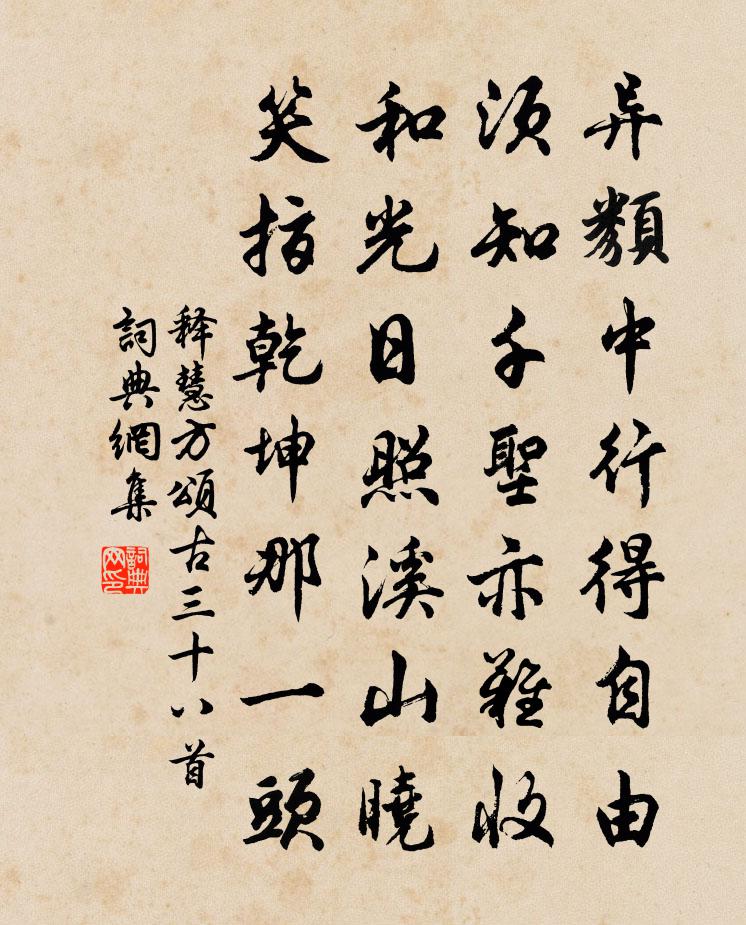 异類中行得自由
須知千聖亦難收
和光日照溪山曉
笑指乾坤那一頭
释慧方頌古三十八首
詞典網集
詞典网印